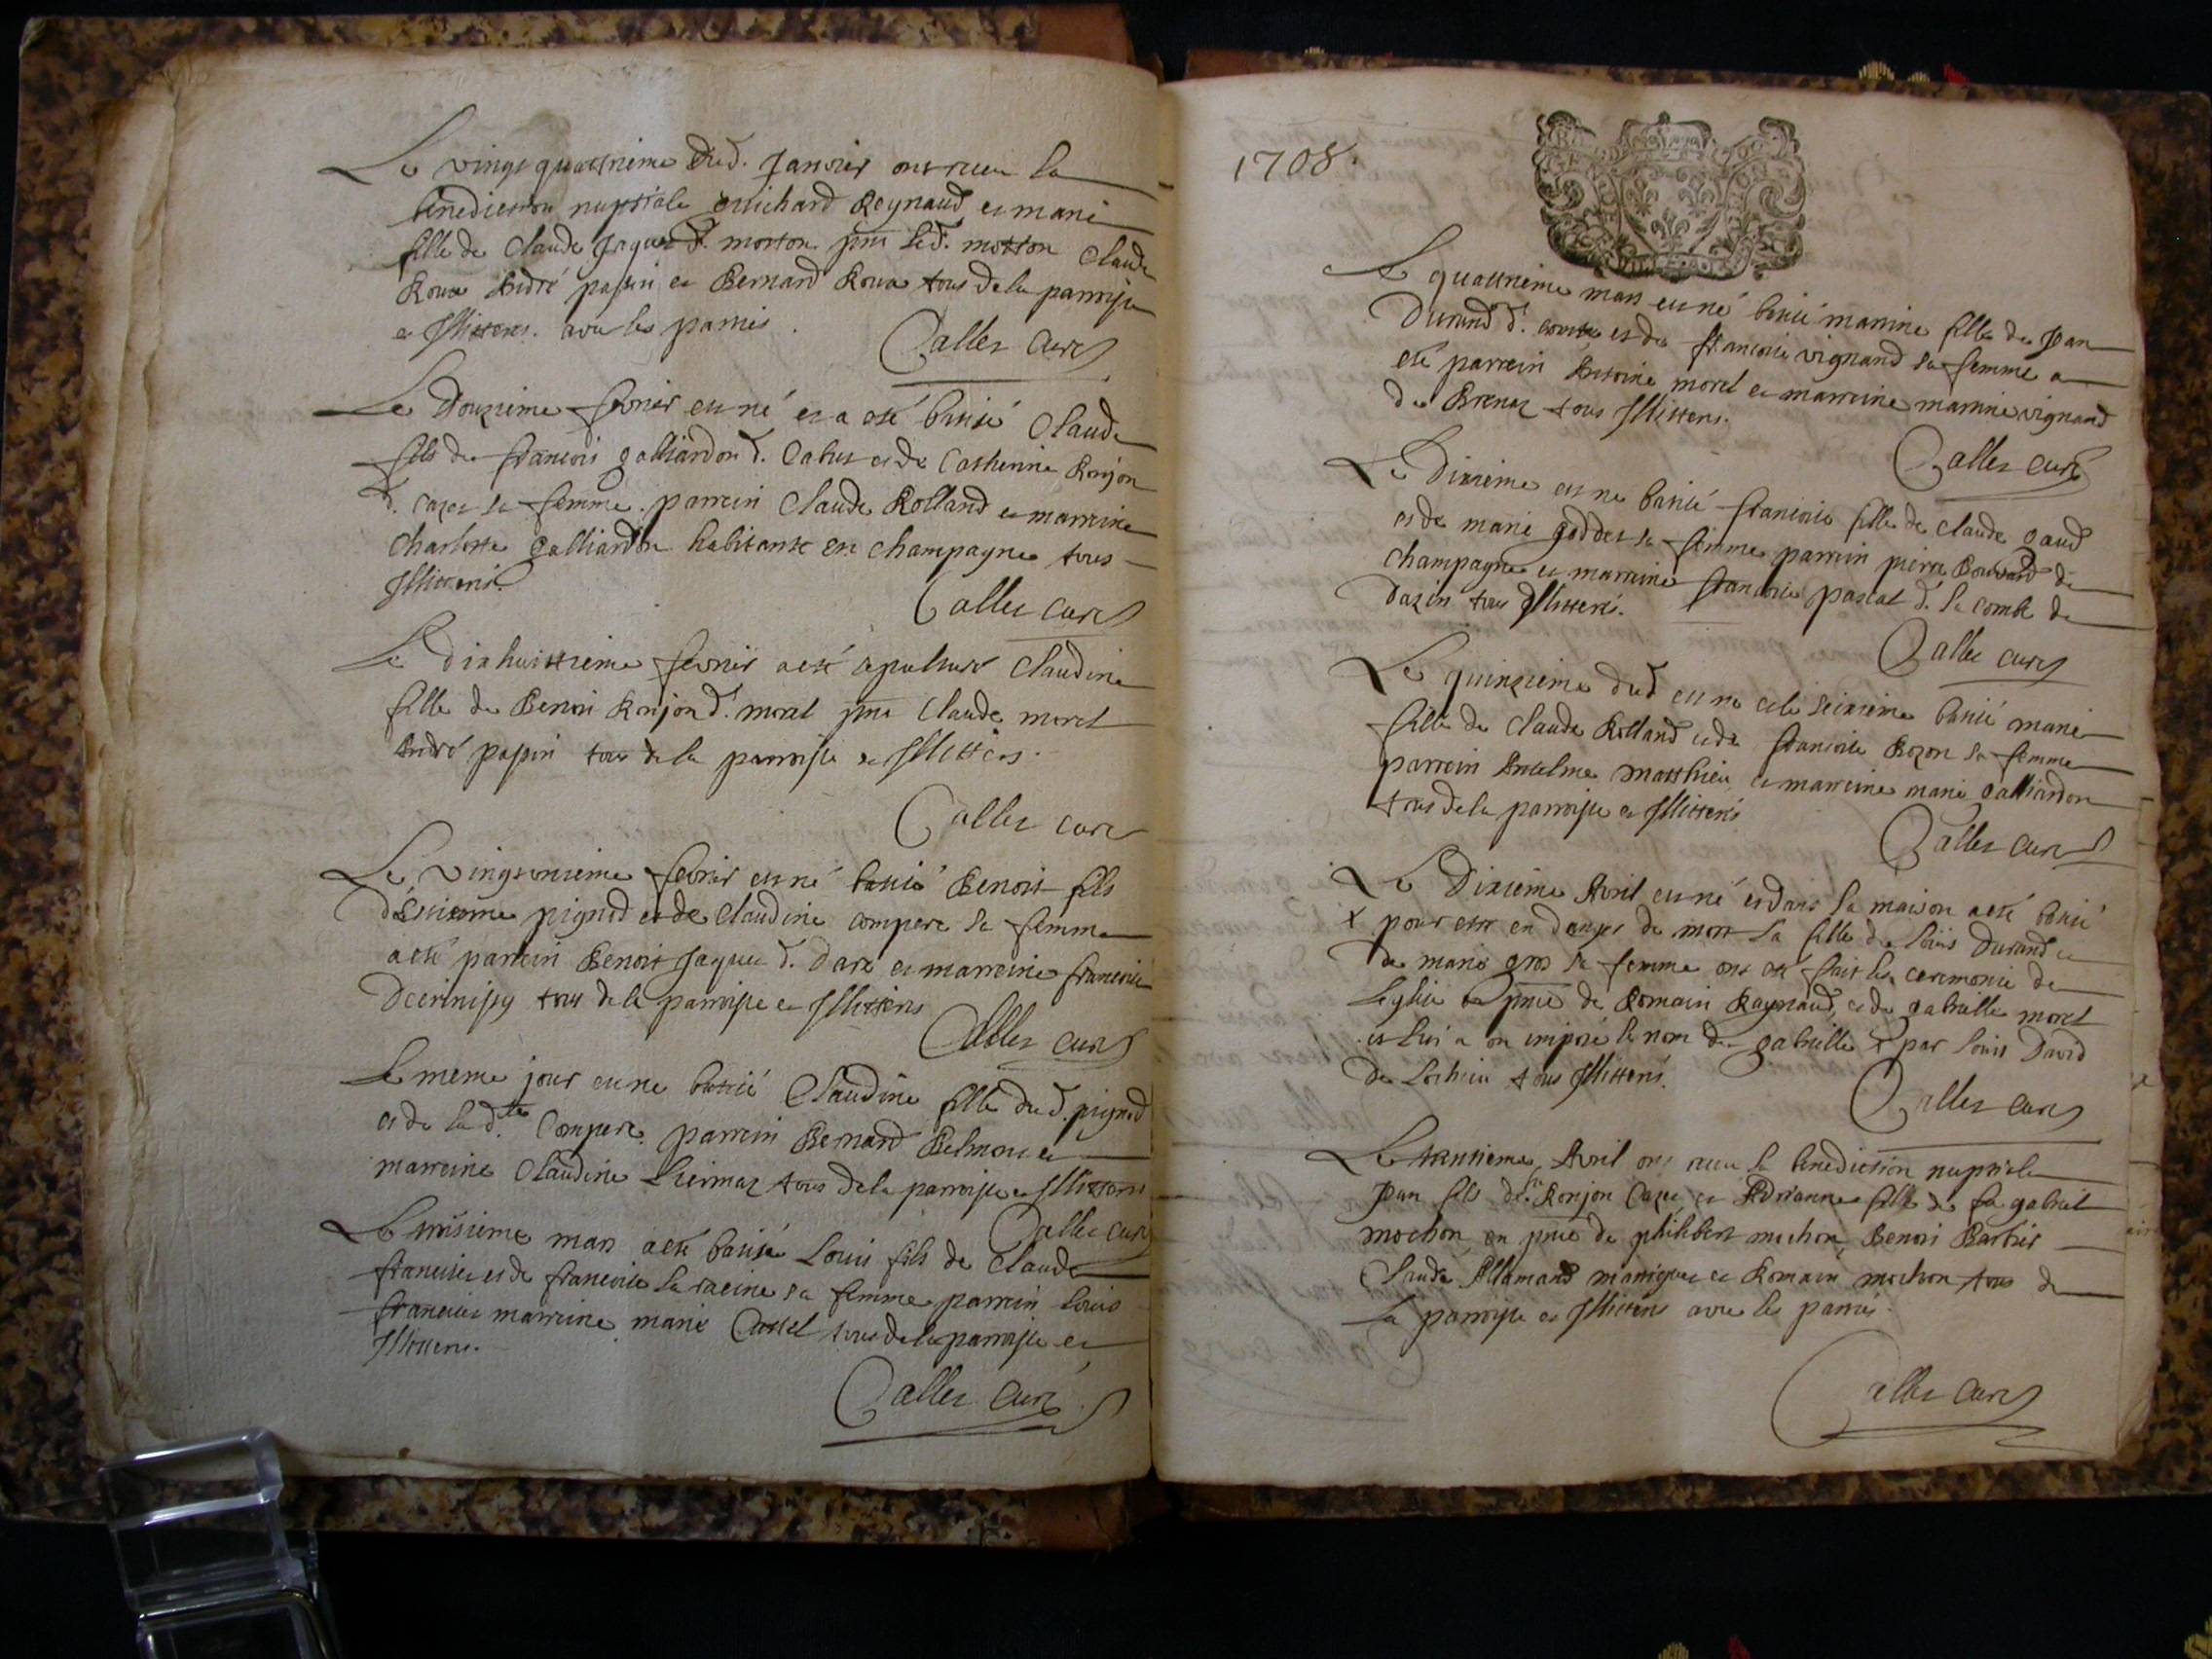 Le vingt quattrieme dud. Janvier ont receu la
benediction nuptiale guichard Reynaud et marie
fille de Claude Jaques d. morton pnt led. motton Claude
Roux André papin et Bernard Roux tous de la parroisse
et Illitteres. avec les parties.
Calles Curé
Le Douzieme fevrier est né et a esté batisé Claude
fils de francois galliardon d. Cabus et de Catherine Ronjon
d. cazet sa femme. parrein Claude Rolland et marreine
Charlotte galliardon habitante en champagne tous
Illitterés.
Calles curé
Le dixhuittieme fevrier a esté sepulturé Claudine
fille de Benoit Ronjon d. morel pnt Claude morel
André papin tous de la parroisse et Illitteres.
Calles curé
Le vingt fevrier est né batisé Benoit fils
d'Estienne pignod et de Claudine compere sa femme
a esté parrein Benoit Jaques d. Darx et marreine francoise
tous de la parroisse et Illitteres
Calles curé
Le meme jour est ne batisé Claudine fille du d. pignod
et de la d.te Compere. parrein Bernard Belmont et
marreine Claudine Liermoz tous de la parroisse et Illitteres
Calles curé
Le troisieme mars a esté batisé Louis fils de Claude
et de francoise la racine sa femme parrein Louis
marreine marie Cattel tous de la parroisse et
Illitteres.
Calles Curé
1708.
Le quattrieme mars est né batisé marrine fille de Jean
Durand d. et de francoise vignand sa femme a
esté parrein Antoine morel et marreine marrine vignand
de Brenaz tous Illitteres.
Calles curé
Le Dixieme est ne batisé francoise fille de Claude gaud
et de marie goddet sa femme parrein pierre Bouvard de
champagne et marreine francoise pascal d. la combe de
Dazin tous Illitterés.
Calles curé
Le quinzieme dud est ne et le seizieme batisé marie
fille de Claude Rolland et de francoise Bozon sa femme
parrein Anselme Matthieu et marreine marie galliardon
tous de la parroisse et Illitterés
Calles curé
Le Dixieme Avril est né et dans la maison a esté batisé
x pour estre en danger de mort la fille de Louis Durand et
de marie gros sa femme ont esté fait les ceremonie de
Leglise en pnce de Romain Raynaud, et de gabrielle morel
et lui a on imposé le nom de gabrielle x par Louis David
de Lochieu tous Illitterés.
Calles curé
Le trentieme Avril ont receu la benediction nuptiale
Jean fils de Ronjon Cazet et Adrianne fille de fu gabriel
mochon en pnce de philibert mochon, Benoit Barbier
Claude Allamand maniguet et Romain mochon tous de
La parroisse et Illitteres avec les parties.
Calles Curé